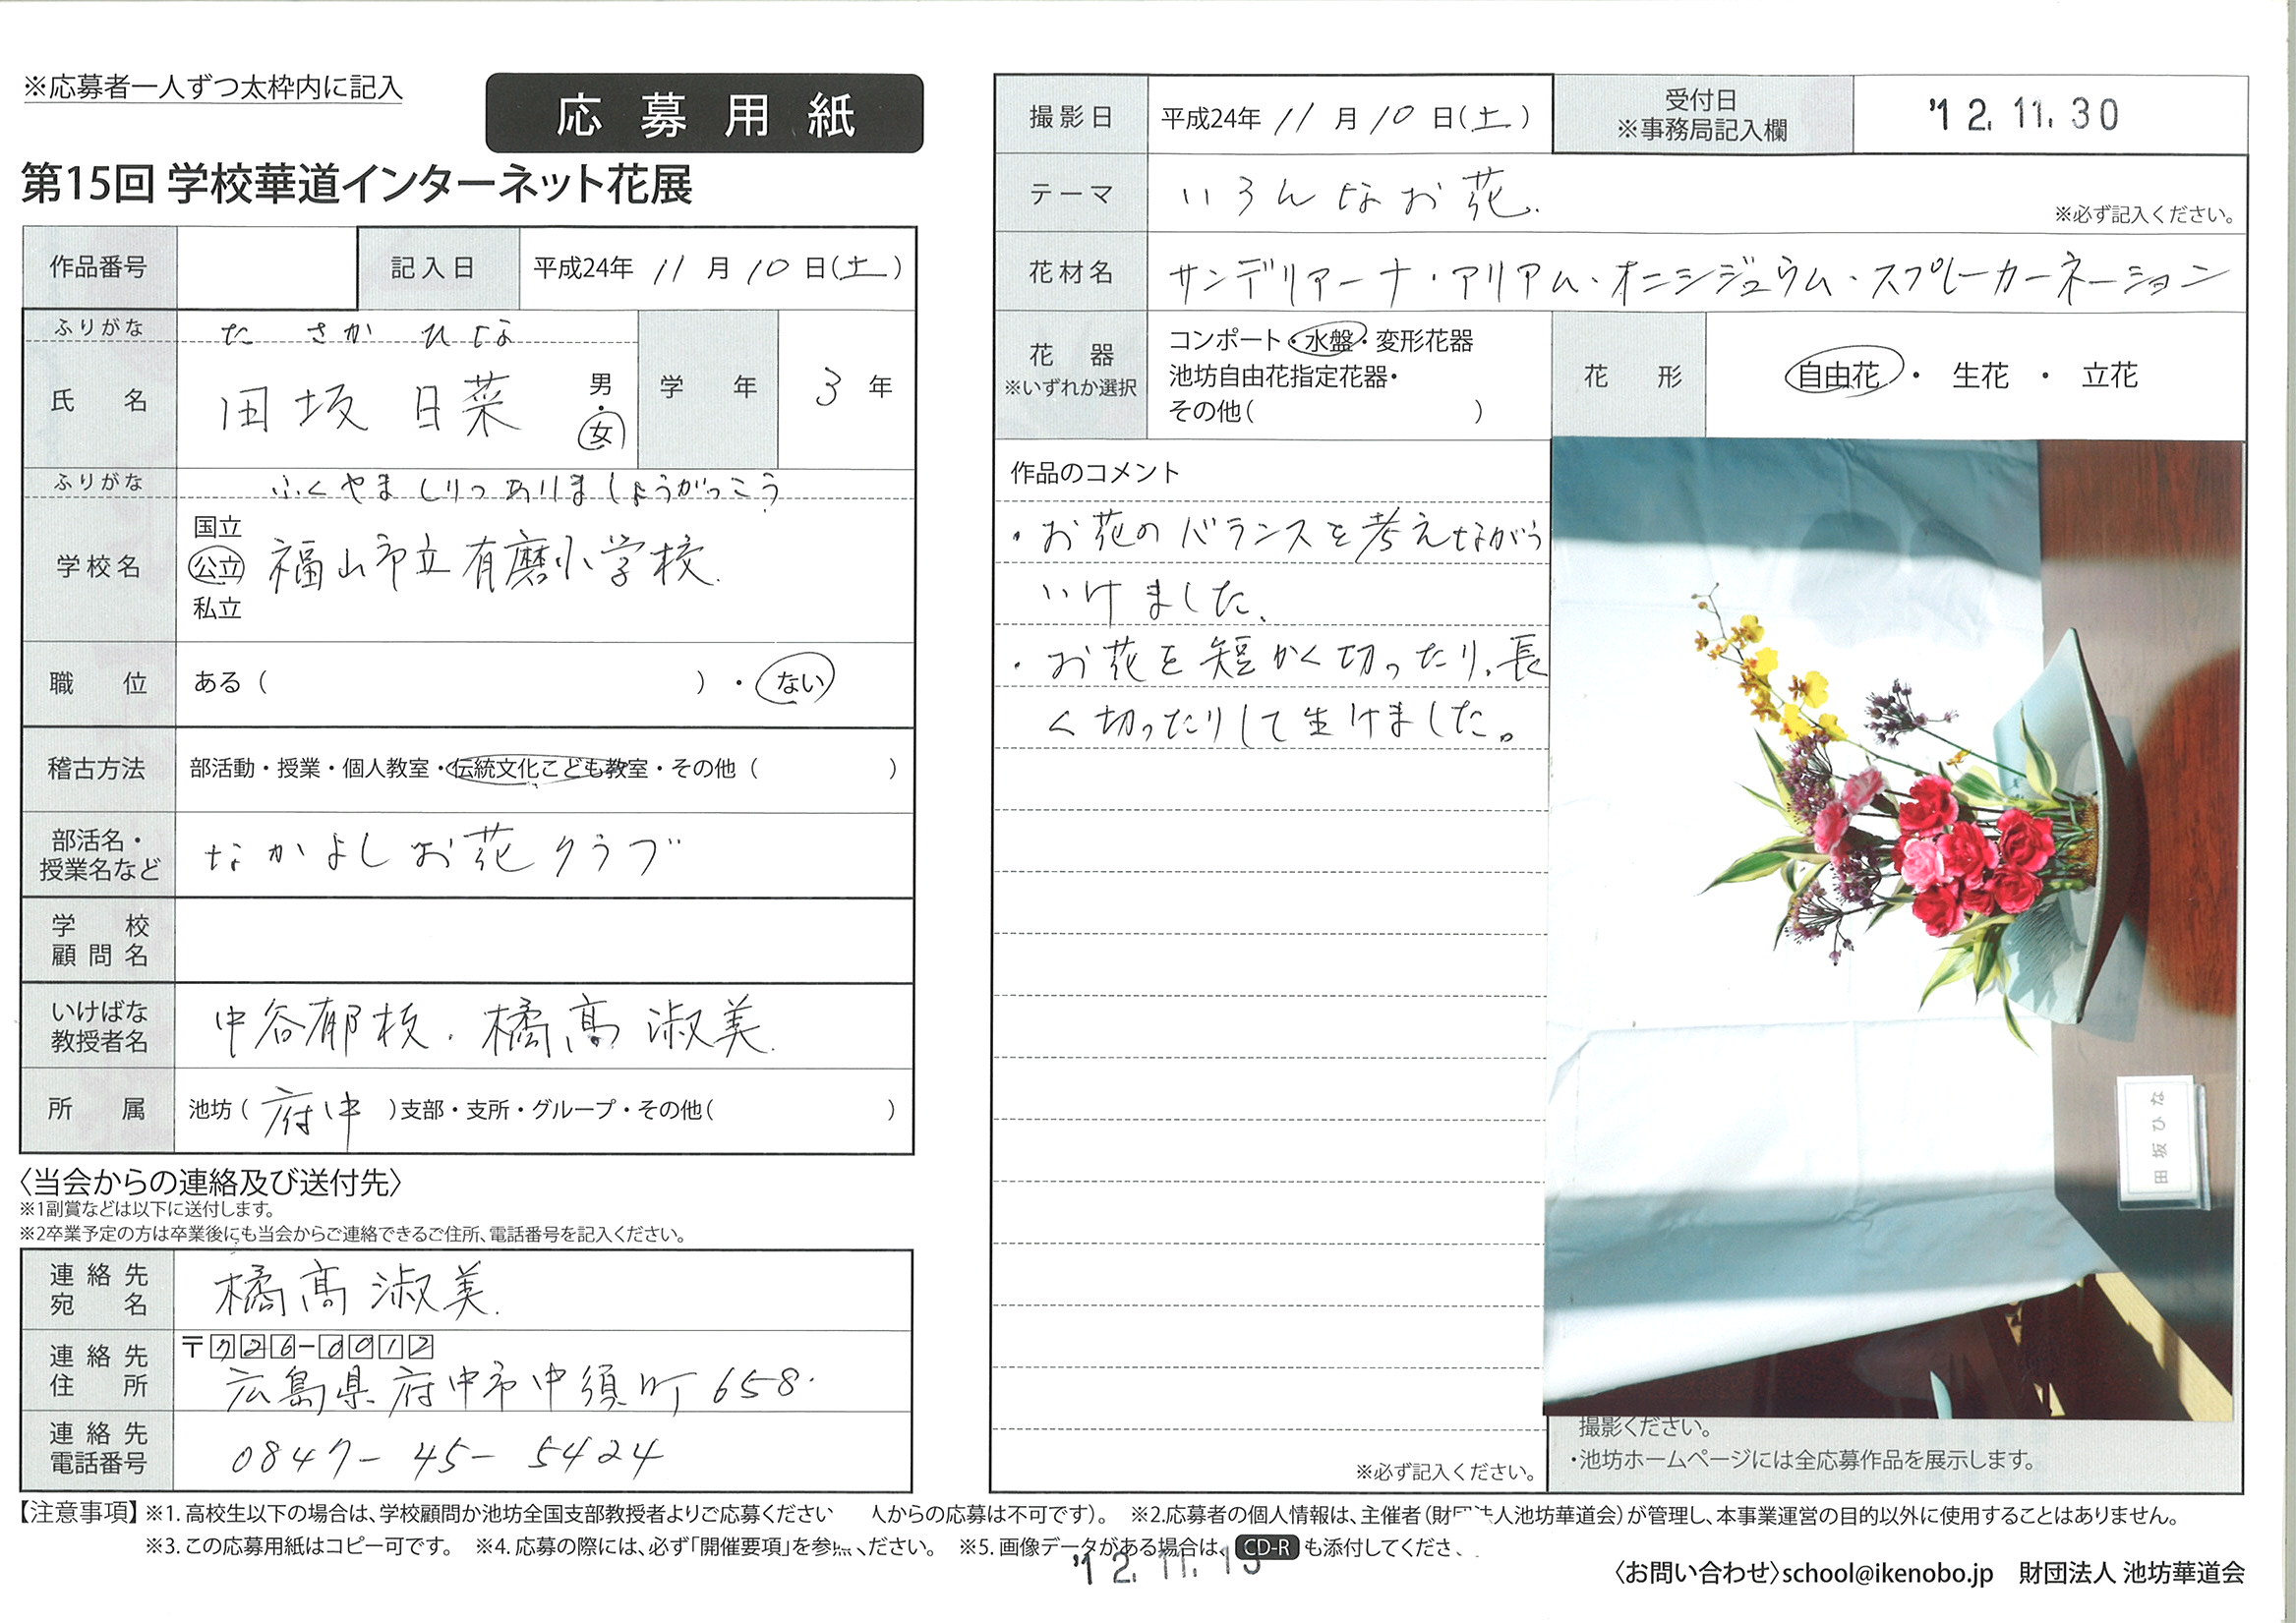 ※応募者一人ずつ太枠内に記入
応募用紙
第15回 学校華道インターネット花展
作品番号
記入日 平成24年 11月10日(土)
ふりがな たさか ひな
氏名 田坂 日菜 男・女
学年 3年
ふりがな ふくやましりつありましょうがっこう
学校名 国立 公立 私立 福山市立有磨小学校.
職位 ある( )・ない
稽古方法 部活動・授業・個人教室・伝統文化こども教室・その他( )
部活名・授業名など なかよしお花クラブ
学校顧問名
いけばな教授者名 中谷郁枝.橘髙淑美.
所属 池坊(府中)支部・支所・グループ・その他( )
〈当会からの連絡及び送付先〉
※1副賞などは以下に送付します。
※2卒業予定の方は卒業後にも当会からご連絡できるご住所、電話番号を記入ください。
連絡先宛名 橘髙淑美.
連絡先住所 〒726-0012
広島県府中市中須町658.
連絡先電話番号 0847-45-5424
撮影日 平成24年 11月10日(土)
受付日 ※事務局記入欄 '12.11.30
テーマ いろんなお花. ※必ず記入ください。
花材名 サンデリアーナ・アリアム・オニシジュウム・スプレーカーネーション
花器 ※いずれか選択 コンポート・水盤・変形花器
池坊自由花指定花器・
その他( )
花形 自由花・生花・立花
作品のコメント
・お花のバランスを考えながら
いけました、
・お花を短かく切ったり、長
く切ったりして生けました。
※必ず記入ください。
田坂ひな
撮影ください。
・池坊ホームページには全応募作品を展示します。
【注意事項】※1.高校生以下の場合は、学校顧問か池坊全国支部教授者よりご応募ください 人からの応募は不可です)。 ※2.応募者の個人情報は、主催者(財団法人池坊華道会)が管理し、本事業運営の目的以外に使用することはありません。
※3.この応募用紙はコピー可です。 ※4.応募の際には、必ず「開催要項」を参照ください。 ※5.画像データがある場合は、CD-Rも添付してくださ
〈お問い合わせ〉school@ikenobo.jp 財団法人 池坊華道会